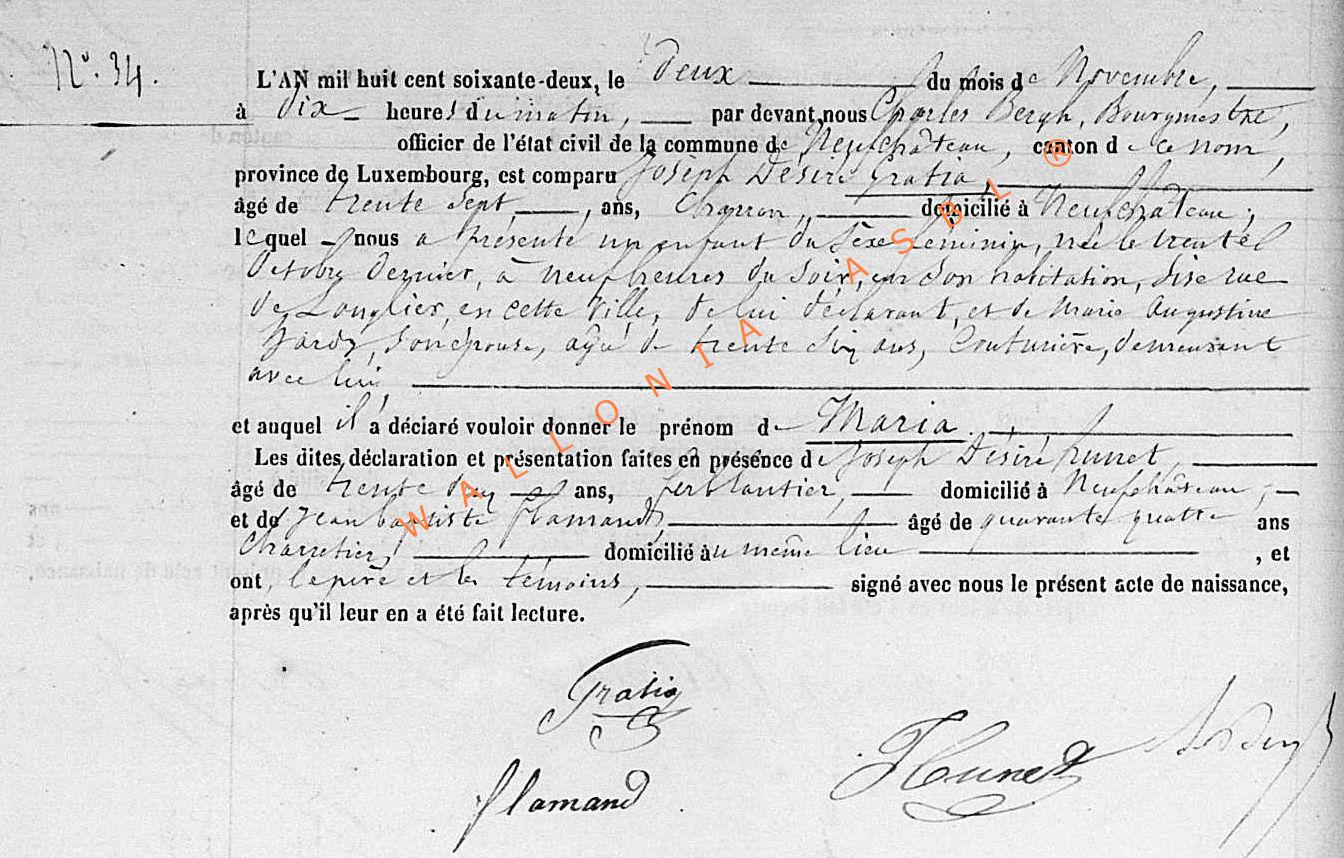 N° 34.
L'AN mil huit cent soixante-deux, le deux du mois de Novembre,
à dix heures du matin, par devant nous Charles Bergh, Bourgmestre,
officier de l'état civil de la commune de Neufchâteau, canton de ce nom,
province de Luxembourg, est comparu Joseph Désiré Gratia,
âgé de trente sept, ans, domicilié à Neufchâteau,
lequel nous a présenté un enfant du sexe féminin, née le trente
Octobre dernier, à neuf heures du soir, en son habitation, sise rue
de Longlier, en cette ville, de lui déclarant, et de Marie Augustine
son épouse, agée de trente six ans, Couturière, demeurant
avec lui
et auquel il a déclaré vouloir donner le prénom de Maria.
Les dites déclaration et présentation faites en présence de Joseph Désiré Hunet,
âgé de trente ans, ferblantier, domicilié à Neufchâteau,
et de Jean Baptiste Flamand, âgé de quarante quatre ans
Charretier, domicilié au même lieu , et
ont, le père et les témoins, signé avec nous le présent acte de naissance,
après qu'il leur en a été fait lecture.
Gratia
Hunet
Flamand
WALLONIA ASBL ®